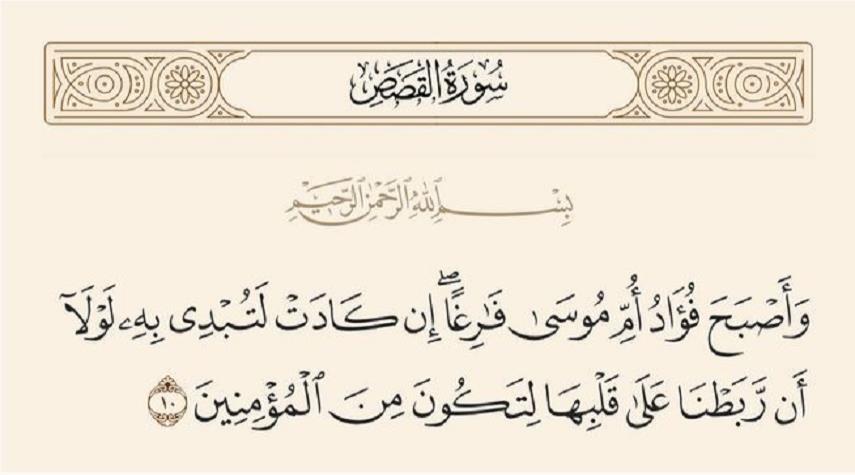 سُورَةُ القَصَصِ
بِسْمِ ٱللَّهِ ٱلرَّحْمَٰنِ ٱلرَّحِيمِ
وَأَصْبَحَ فُؤَادُ أُمِّ مُوسَىٰ فَٰرِغًاۖ إِن كَادَتْ لَتُبْدِى بِهِۦ لَوْلَآ
أَن رَّبَطْنَا عَلَىٰ قَلْبِهَا لِتَكُونَ مِنَ ٱلْمُؤْمِنِينَ ١٠